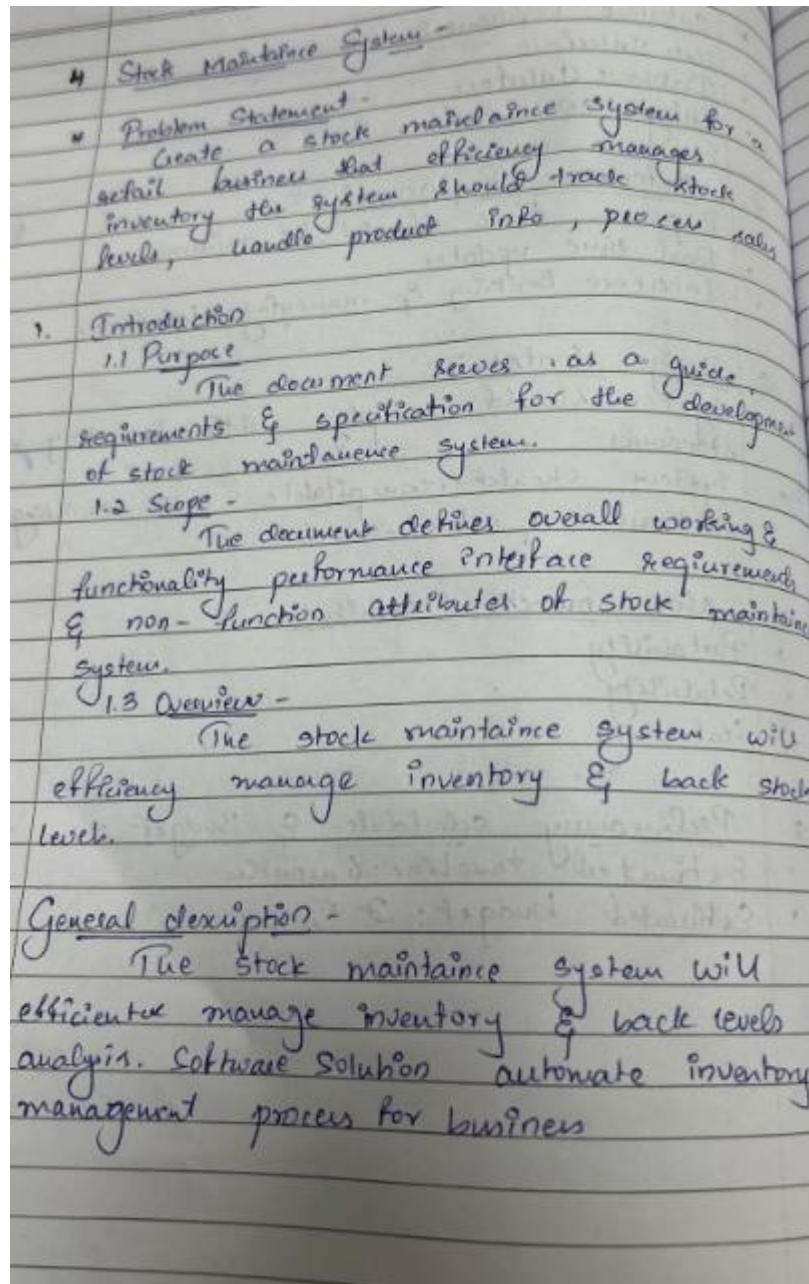 4 Stock Maintaince System -
* Problem Statement -
Create a stock maintaince system for a
retail business that efficiency manages
inventory the system should track stock
levels, handle product info, process sales
1. Introduction
1.1 Purpose
The document serves as a guide,
reqiurements & specification for the development
of stock maintauence system.
1.2 Scope -
The document defines overall working &
functionality performance interface reqiurements
& non-function attributes of stock maintaince
system.
1.3 Overview -
The stock maintaince system will
efficiency manage inventory & back stock
level.
General description -
The stock maintaince system will
manage inventory & back levels
analysis. Software Solution automate inventory
management process for business